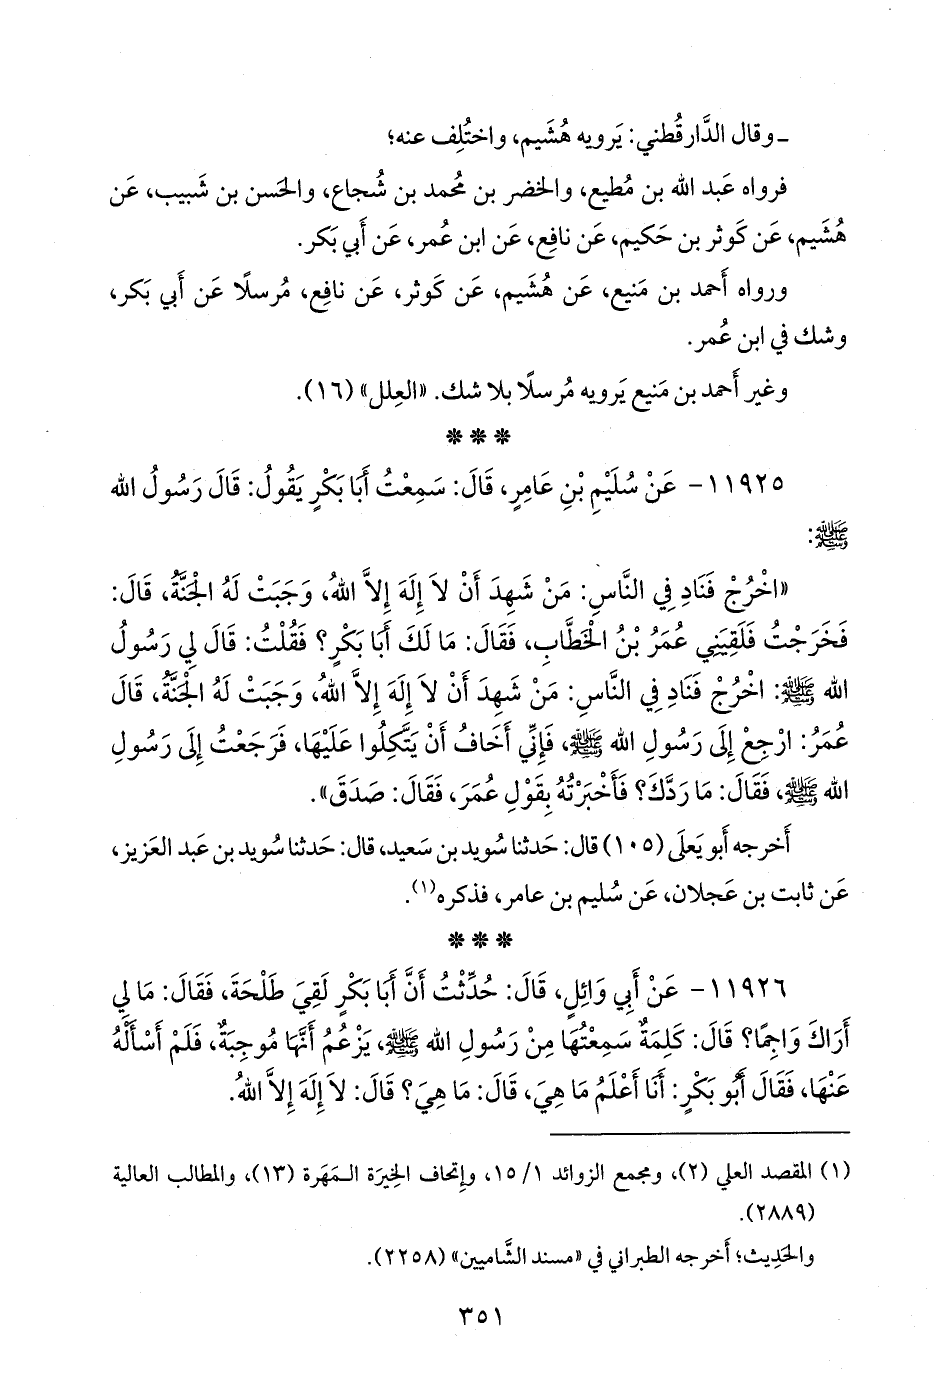 ـ وقال الدَّارقُطني: يَرويه هُشَيم، واختُلِف عنه؛
فرواه عَبد الله بن مُطيع، والخضر بن مُحمد بن شُجاع، والحَسن بن شَبيب، عَن
هُشَيم، عَن كَوثر بن حَكيم، عَن نافِع، عَن ابن عُمر، عَن أَبي بَكر.
ورواه أَحمد بن مَنيع، عَن هُشَيم، عَن كَوثر، عَن نافِع، مُرسلًا عَن أَبي بَكر،
وشك في ابن عُمر.
وغير أَحمد بن مَنيع يَرويه مُرسلًا بلا شك. «العِلل» (١٦).
* * *
١١٩٢٥- عَنْ سُلَيْمِ بْنِ عَامِرٍ، قَالَ: سَمِعْتُ أَبَا بَكْرٍ يَقُولُ: قَالَ رَسُولُ الله
ﷺ:
«اخْرُجْ فَنَادِ فِي النَّاسِ: مَنْ شَهِدَ أَنْ لاَ إِلَهَ إِلاَّ اللهُ، وَجَبَتْ لَهُ الْجَنَّةُ، قَالَ:
فَخَرَجْتُ فَلَقِيَنِي عُمَرُ بْنُ الْخَطَّابِ، فَقَالَ: مَا لَكَ أَبَا بَكْرٍ؟ فَقُلْتُ: قَالَ لِي رَسُولُ
الله ﷺ: اخْرُجْ فَنَادِ فِي النَّاسِ: مَنْ شَهِدَ أَنْ لاَ إِلَهَ إِلاَّ اللهُ، وَجَبَتْ لَهُ الْجَنَّةُ، قَالَ
عُمَرُ: ارْجِعْ إِلَى رَسُولِ الله ﷺ، فَإِنِّي أَخَافُ أَنْ يَتَّكِلُوا عَلَيْهَا، فَرَجَعْتُ إِلَى رَسُولِ
الله ﷺ، فَقَالَ: مَا رَدَّكَ؟ فَأَخْبَرْتُهُ بِقَوْلِ عُمَرَ، فَقَالَ: صَدَقَ».
أَخرجه أَبو يَعلَى (١٠٥) قال: حَدثنا سُويد بن سَعيد، قال: حَدثنا سُويد بن عَبد العَزيز،
عَن ثابت بن عَجلان، عَن سُليم بن عامر، فذكره(١).
* * *
١١٩٢٦- عَنْ أَبِي وَائِلٍ، قَالَ: حُدِّثْتُ أَنَّ أَبَا بَكْرٍ لَقِيَ طَلْحَةَ، فَقَالَ: مَا لِي
أَرَاكَ وَاجِمًا؟ قَالَ: كَلِمَةٌ سَمِعْتُهَا مِنْ رَسُولِ الله ﷺ، يَزْعُمُ أَنَّهَا مُوجِبَةٌ، فَلَمْ أَسْأَلْهُ
عَنْهَا، فَقَالَ أَبُو بَكْرٍ: أَنَا أَعْلَمُ مَا هِيَ، قَالَ: مَا هِيَ؟ قَالَ: لاَ إِلَهَ إِلاَّ اللهُ.
(١) المقصد العلي (٢)، ومجمع الزوائد ١/ ١٥، وإتحاف الخِيرَة المَهَرة (١٣)، والمطالب العالية
(٢٨٨٩).
والحَدِيث؛ أَخرجه الطبراني في «مسند الشَّاميين» (٢٢٥٨).
٣٥١